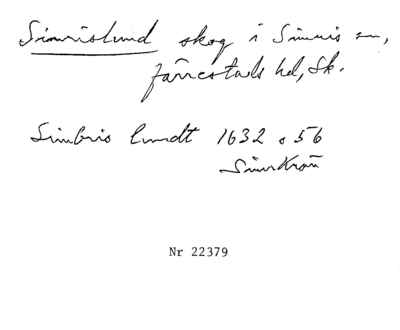 Simrislund skog i Simris sn,
Järrestads hd, Sk.
Simbris lundt 1632 s 56
SimrKrön
Nr 22379